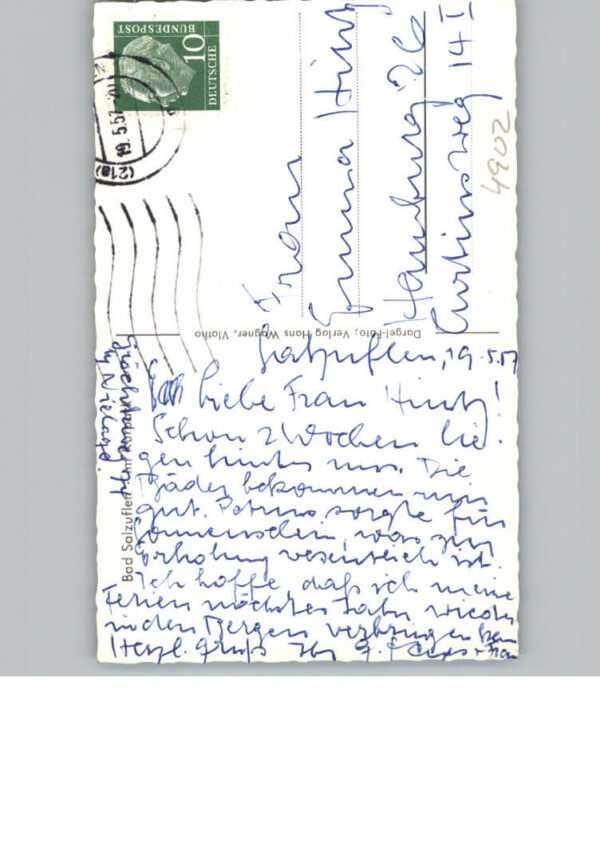 DEUTSCHE
BUNDESPOST
10
19.5.57
(21a)
Frau
Emma Hintz
Hamburg 26
Curtiusweg 14 I
4902
Dargel-Foto, Verlag Hans Wagner, Vlotho
Bad Salzuflen Im Kurpark
Salzuflen, 19.5.57
Liebe Frau Hintz!
Schon 2 Wochen lie-
gen hinter uns. Die
Bäder bekommen uns
gut. Petrus sorgte für
Sonnenschein, was zur
Erholung wesentlich ist.
Ich hoffe, daß ich meine
Ferien nächstes Jahr wieder
in den Bergen verbringen kann
Herzl. Gruß Ihr + Frau